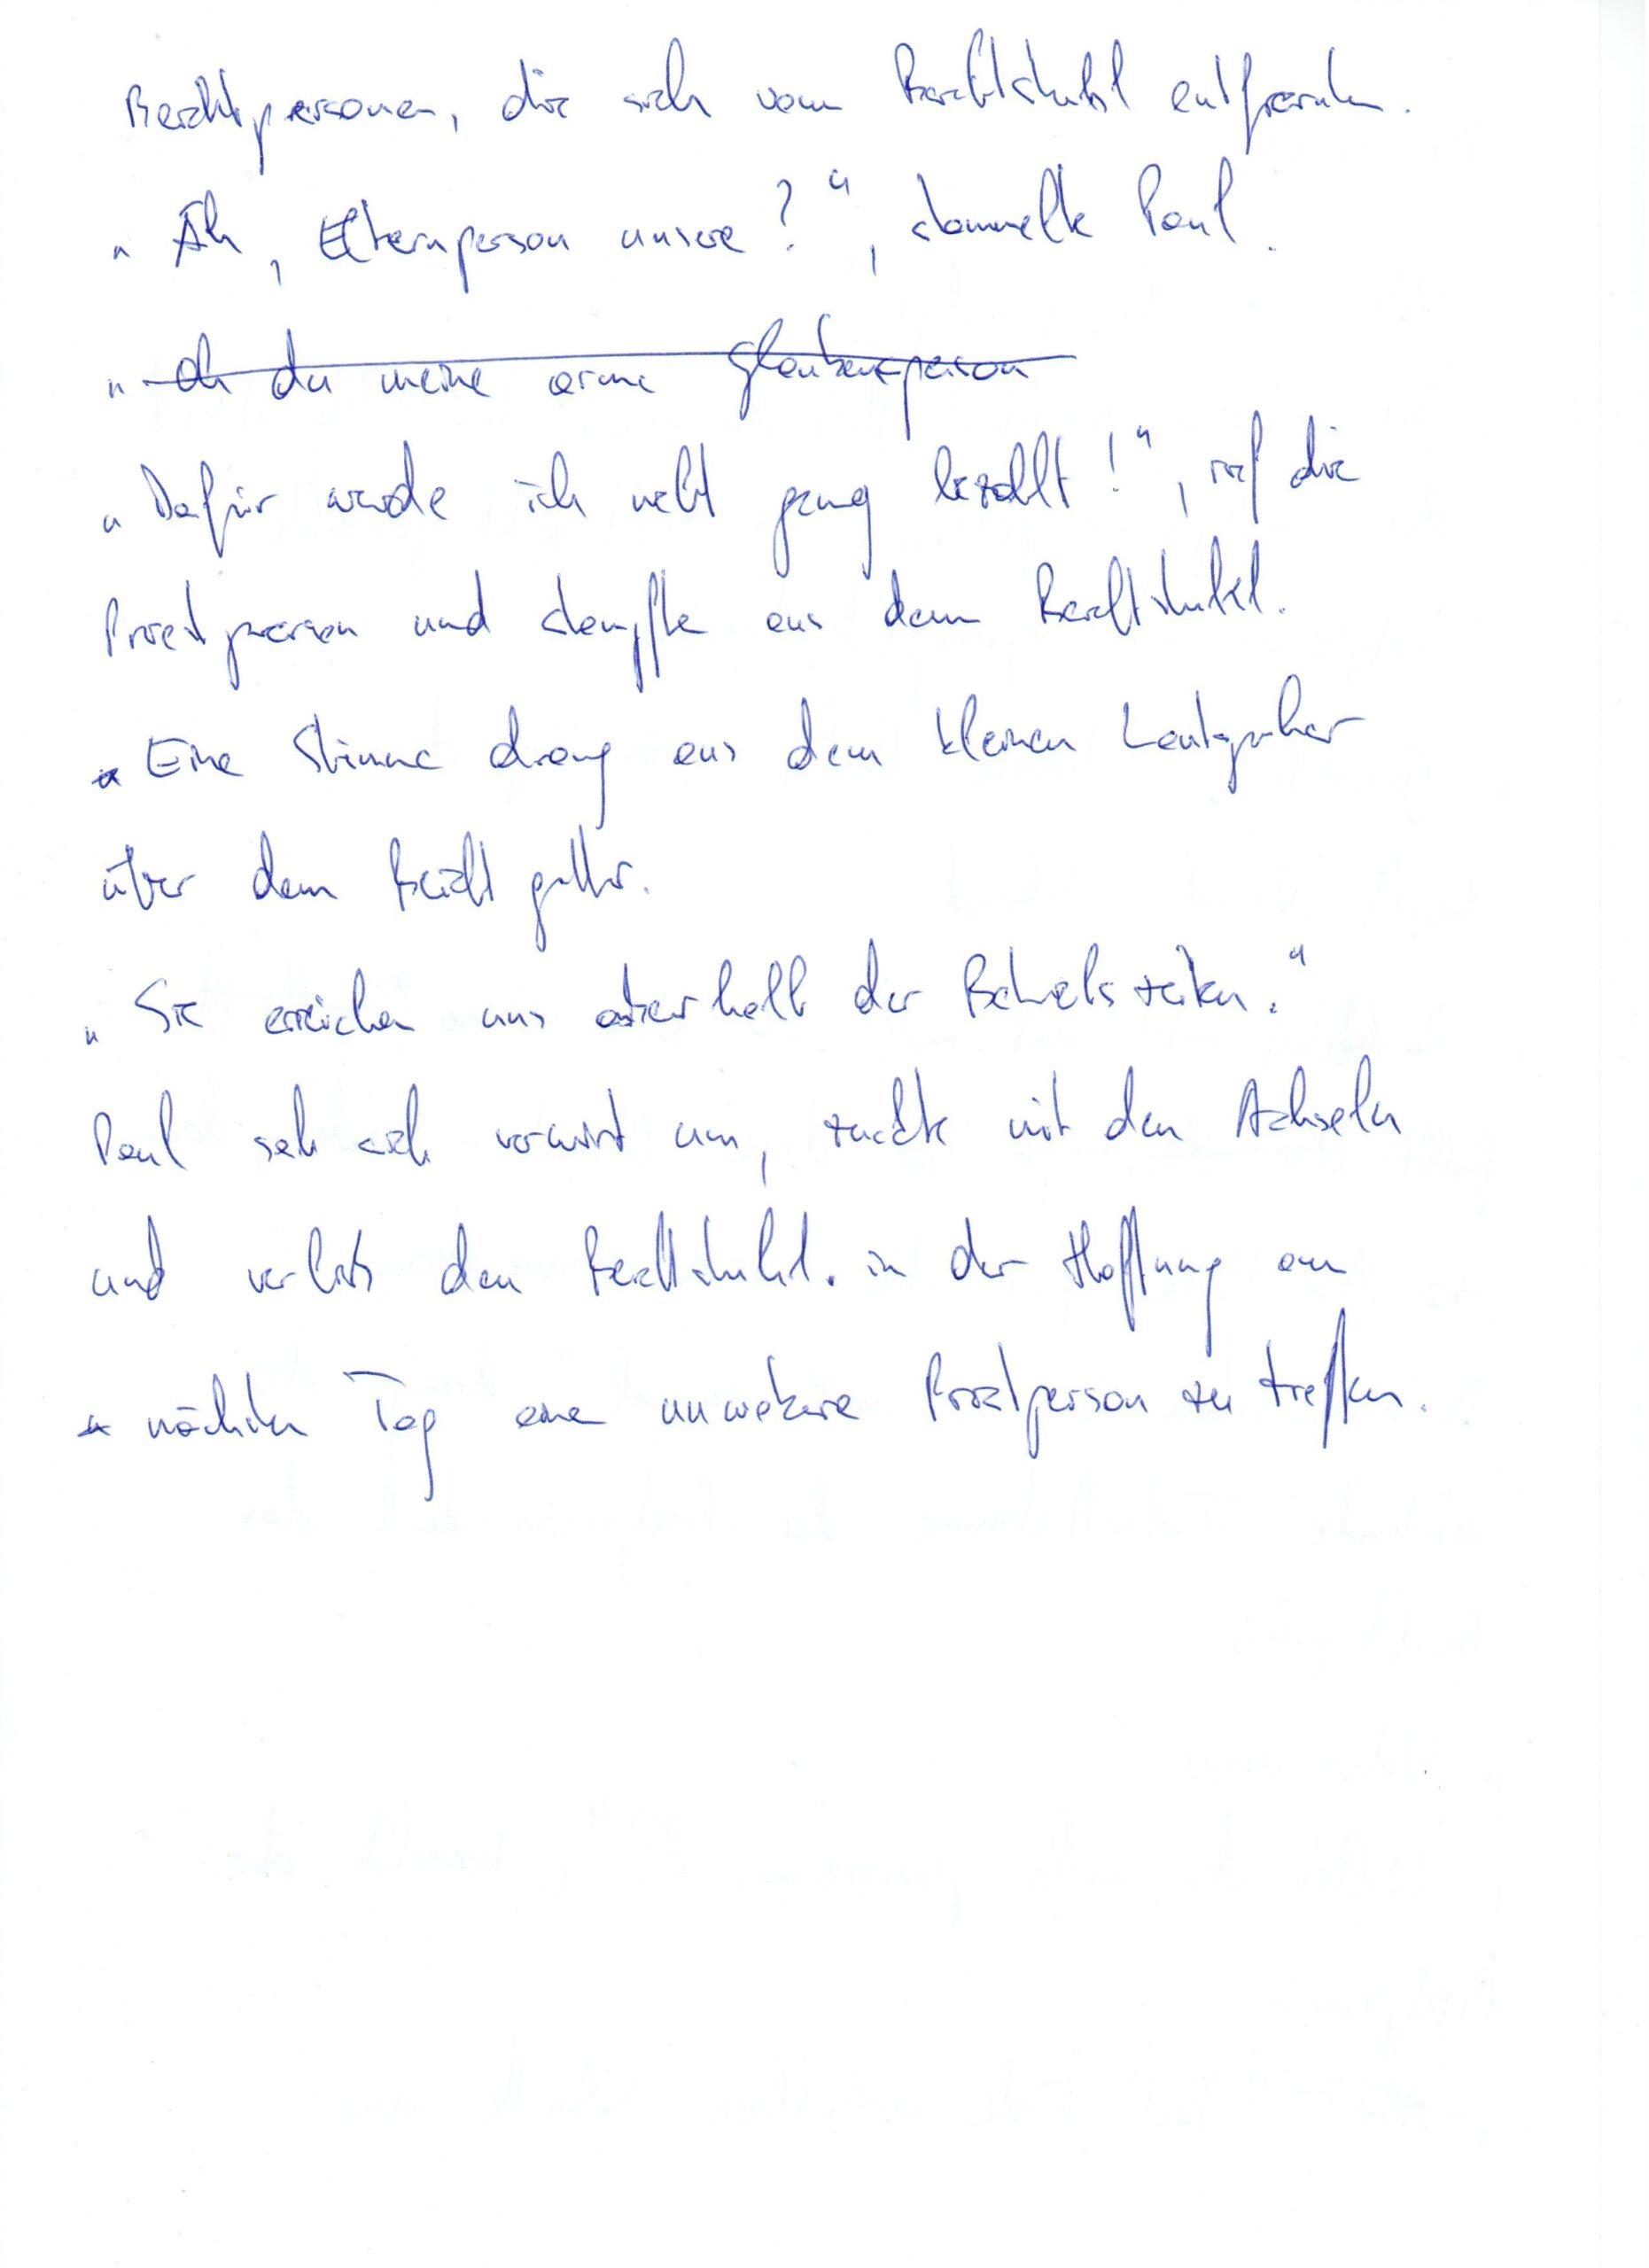 Beichtpersonen, die sich vom Beichtstuhl entfernten.
„Äh, Elternperson unsere?“, stammelte Paul.
„Oh du meine arme Glaubensperson
„Dafür werde ich nicht genug bezahlt!“, rief die
Priestperson und stampfte aus dem Beichtstuhl.
Eine Stimme drang aus dem kleinen Lautsprecher
über dem Beichtgitter.
„Sie erreichen uns außerhalb der Betriebszeiten.“
Paul sah sich verwirrt um, zuckte mit den Achseln
und verließ den Beichtstuhl. in der Hoffnung am
nächsten Tag eine Priestperson zu treffen.